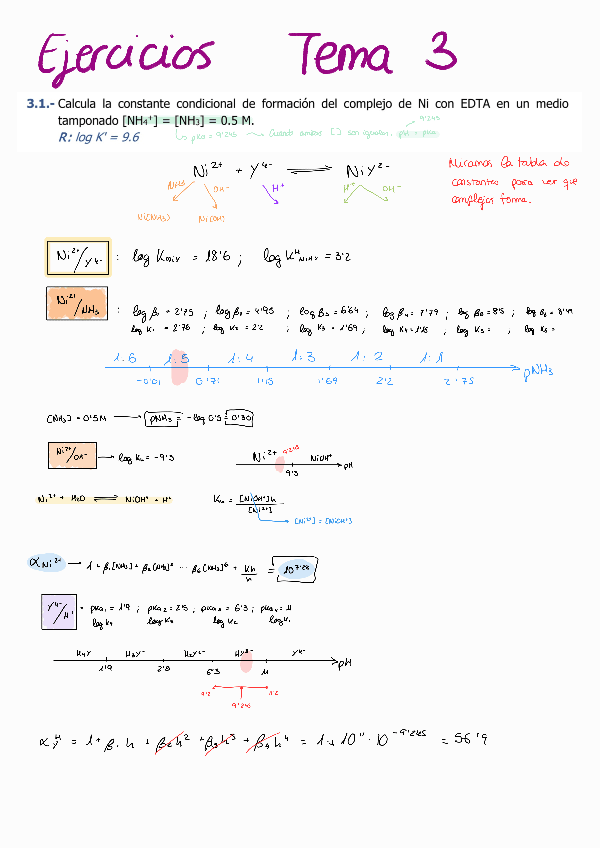 Ejercicios Tema 3
3.1.- Calcula la constante condicional de formación del complejo de Ni con EDTA en un medio
tamponado [NH₄⁺] = [NH₃] = 0.5 M.
9'245
R: log K' = 9.6
pKa = 9'245 Cuando ambas [ ] son iguales, pH = pKa
Ni²⁺ + Y⁴⁻ ⇌ NiY²⁻
NH₃ OH⁻ H⁺ H⁺ OH⁻
Ni(NH₃) Ni(OH)
Miramos la tabla de
constantes para ver que
complejos forma.
Ni²⁺/Y⁴⁻ : log KNiY = 18'6 ; log Kᴴ NiHY = 3'2
Ni²⁺/NH₃ : log β₁ = 2'75 ; log β₂ = 4'95 ; log β₃ = 6'64 ; log β₄ = 7'79 ; log β₅ = 8'5 ; log β₆ = 8'49
log K₁ = 2'75 ; log K₂ = 2'2 ; log K₃ = 1'69 ; log K₄ = 1'15 ; log K₅ = ; log K₆ =
1:6 1:5 1:4 1:3 1:2 1:1
-0'01 0'71 1'15 1'69 2'2 2'75 pNH₃
[NH₃] = 0'5M → pNH₃ = -log 0'5 = 0'30
Ni²⁺/OH⁻ → log Ka = -9'3
Ni²⁺ 9'245 NiOH⁺ pH
9'3
Ni²⁺ + H₂O ⇌ NiOH⁺ + H⁺
Ka = [NiOH⁺]h / [Ni²⁺]
→ [Ni²⁺] = [NiOH⁺]
αNi²⁺ → 1 + β₁[NH₃] + β₂[NH₃]² ... β₆[NH₃]⁶ + Kh/h = 10⁷'²⁸
Y⁴⁻/H⁺ • pKa₁ = 1'9 ; pKa₂ = 2'8 ; pKa₃ = 6'3 ; pKa₄ = 11
log K₄ log K₃ log K₂ log K₁
H₄Y H₃Y⁻ H₂Y²⁻ HY³⁻ Y⁴⁻
1'9 2'8 6'3 11 pH
9'245
αYᴴ = 1 + β₁h + β₂h² + β₃h³ + β₄h⁴ = 1 + 10¹¹ · 10⁻⁹'²⁴⁵ = 56'9